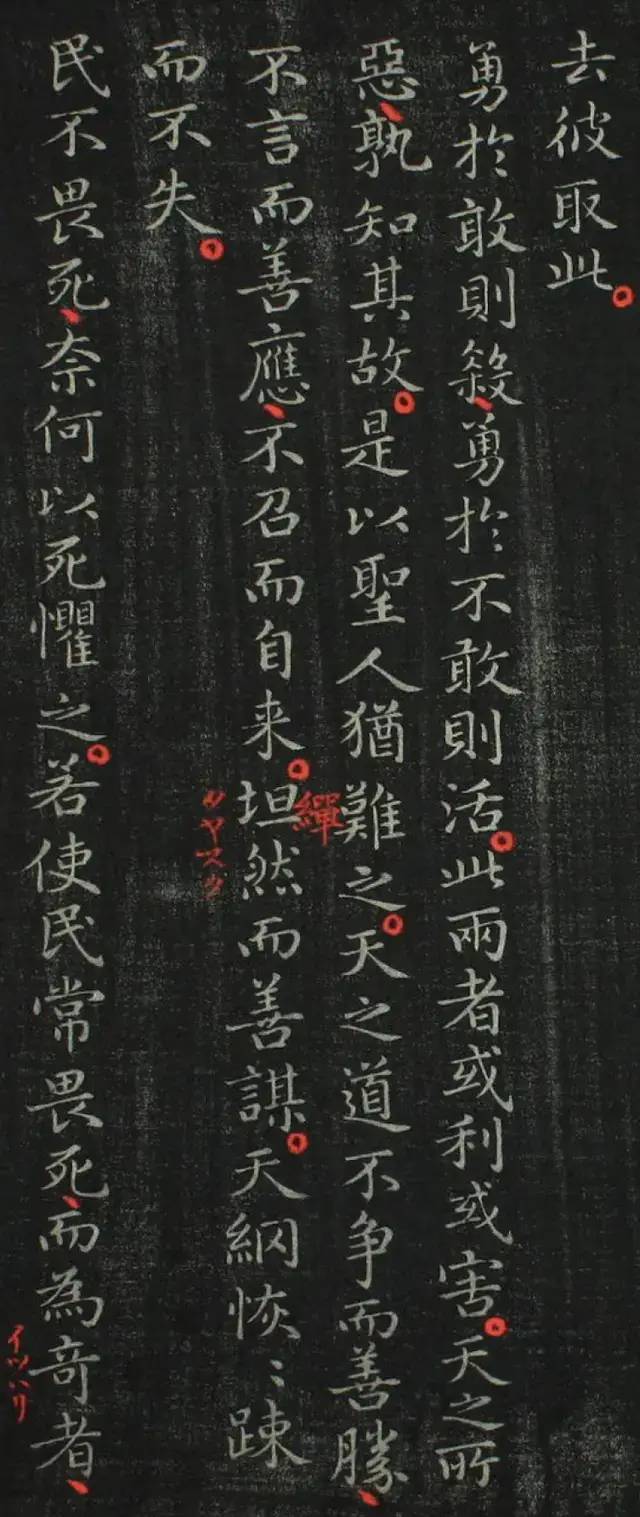 去彼取此。
勇於敢則殺、勇於不敢則活。此兩者或利或害。天之所
惡、孰知其故。是以聖人猶難之。天之道不争而善勝、
繟
不言而善應、不召而自来。坦然而善謀。天網恢〻踈
而不失。
民不畏死、奈何以死懼之。若使民常畏死、而為奇者、
イツハリ